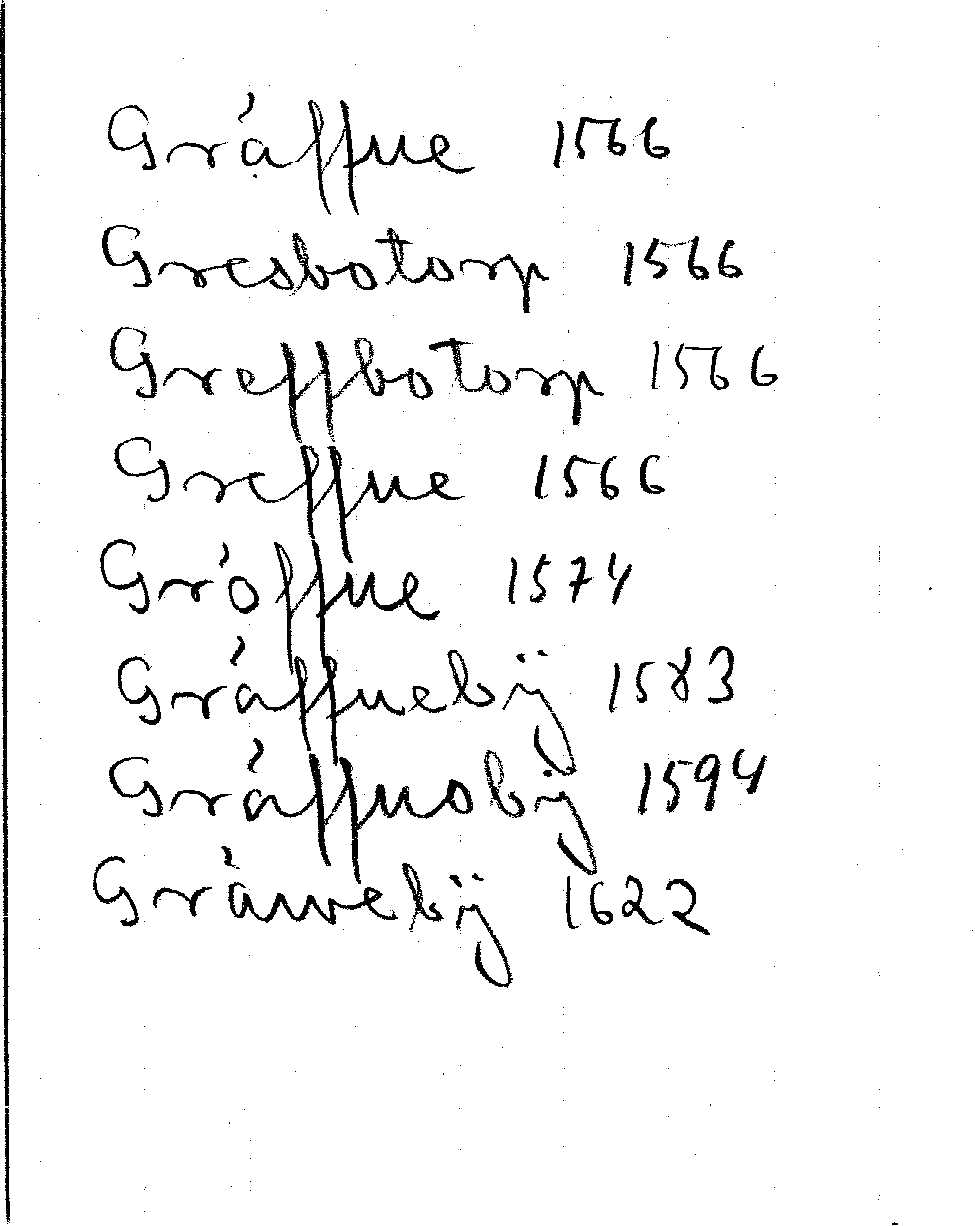 Gráffue 1566
Gresbotorp 1566
Greffbotorp 1566
Greffue 1566
Gróffue 1574
Gráffuebÿ 1583
Gráffuobÿ 1594
Gráwebÿ 1622